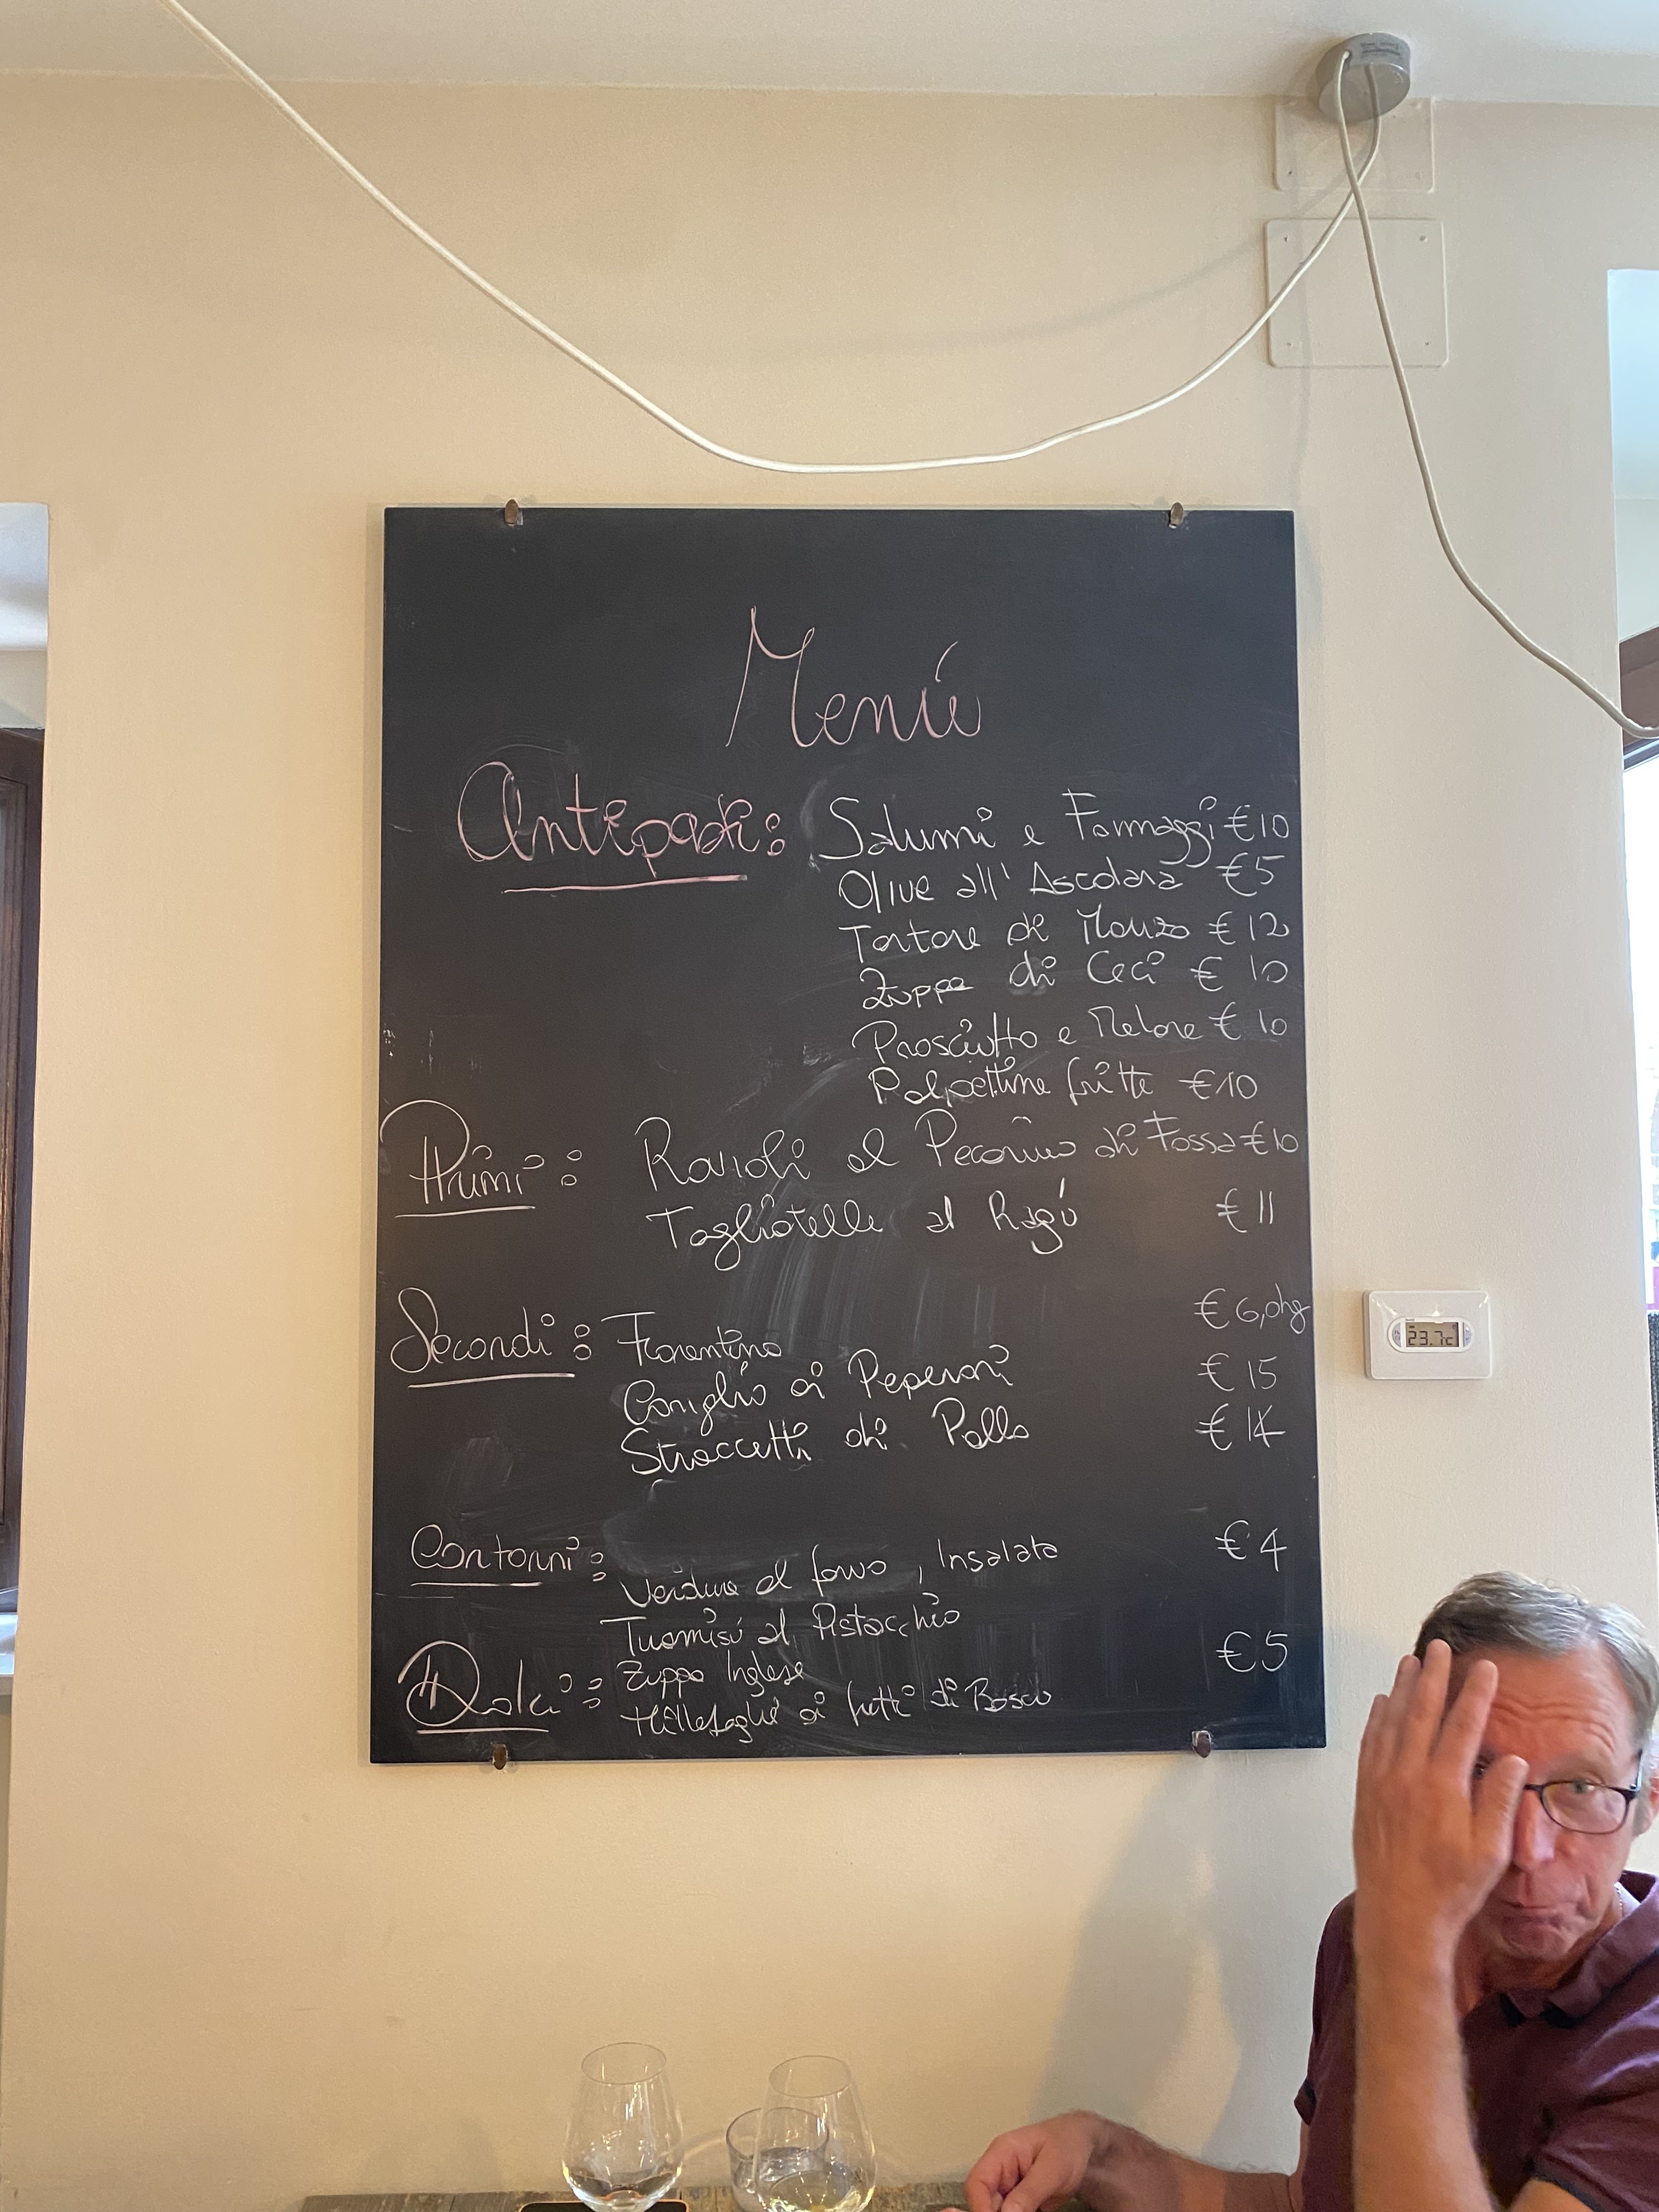 Menú
Antipasti: Salumi e Formaggi €10
Olive all' Ascolana €5
Tartare di Manzo € 12
Zuppa di Ceci € 10
Prosciutto e Melone € 10
Polpettine fritte €10
Primi: Ravioli al Pecorino di Fossa €10
Tagliatelle al Ragú €11
Secondi: Fiorentina € 6,0hg
Coniglio ai Peperoni € 15
Straccetti di Pollo € 14
Contorni: Verdure al forno, Insalata € 4
Tiramisú al Pistacchio
Dolci: Zuppa Inglese €5
Millefoglie ai frutti di Bosco
23.7°C